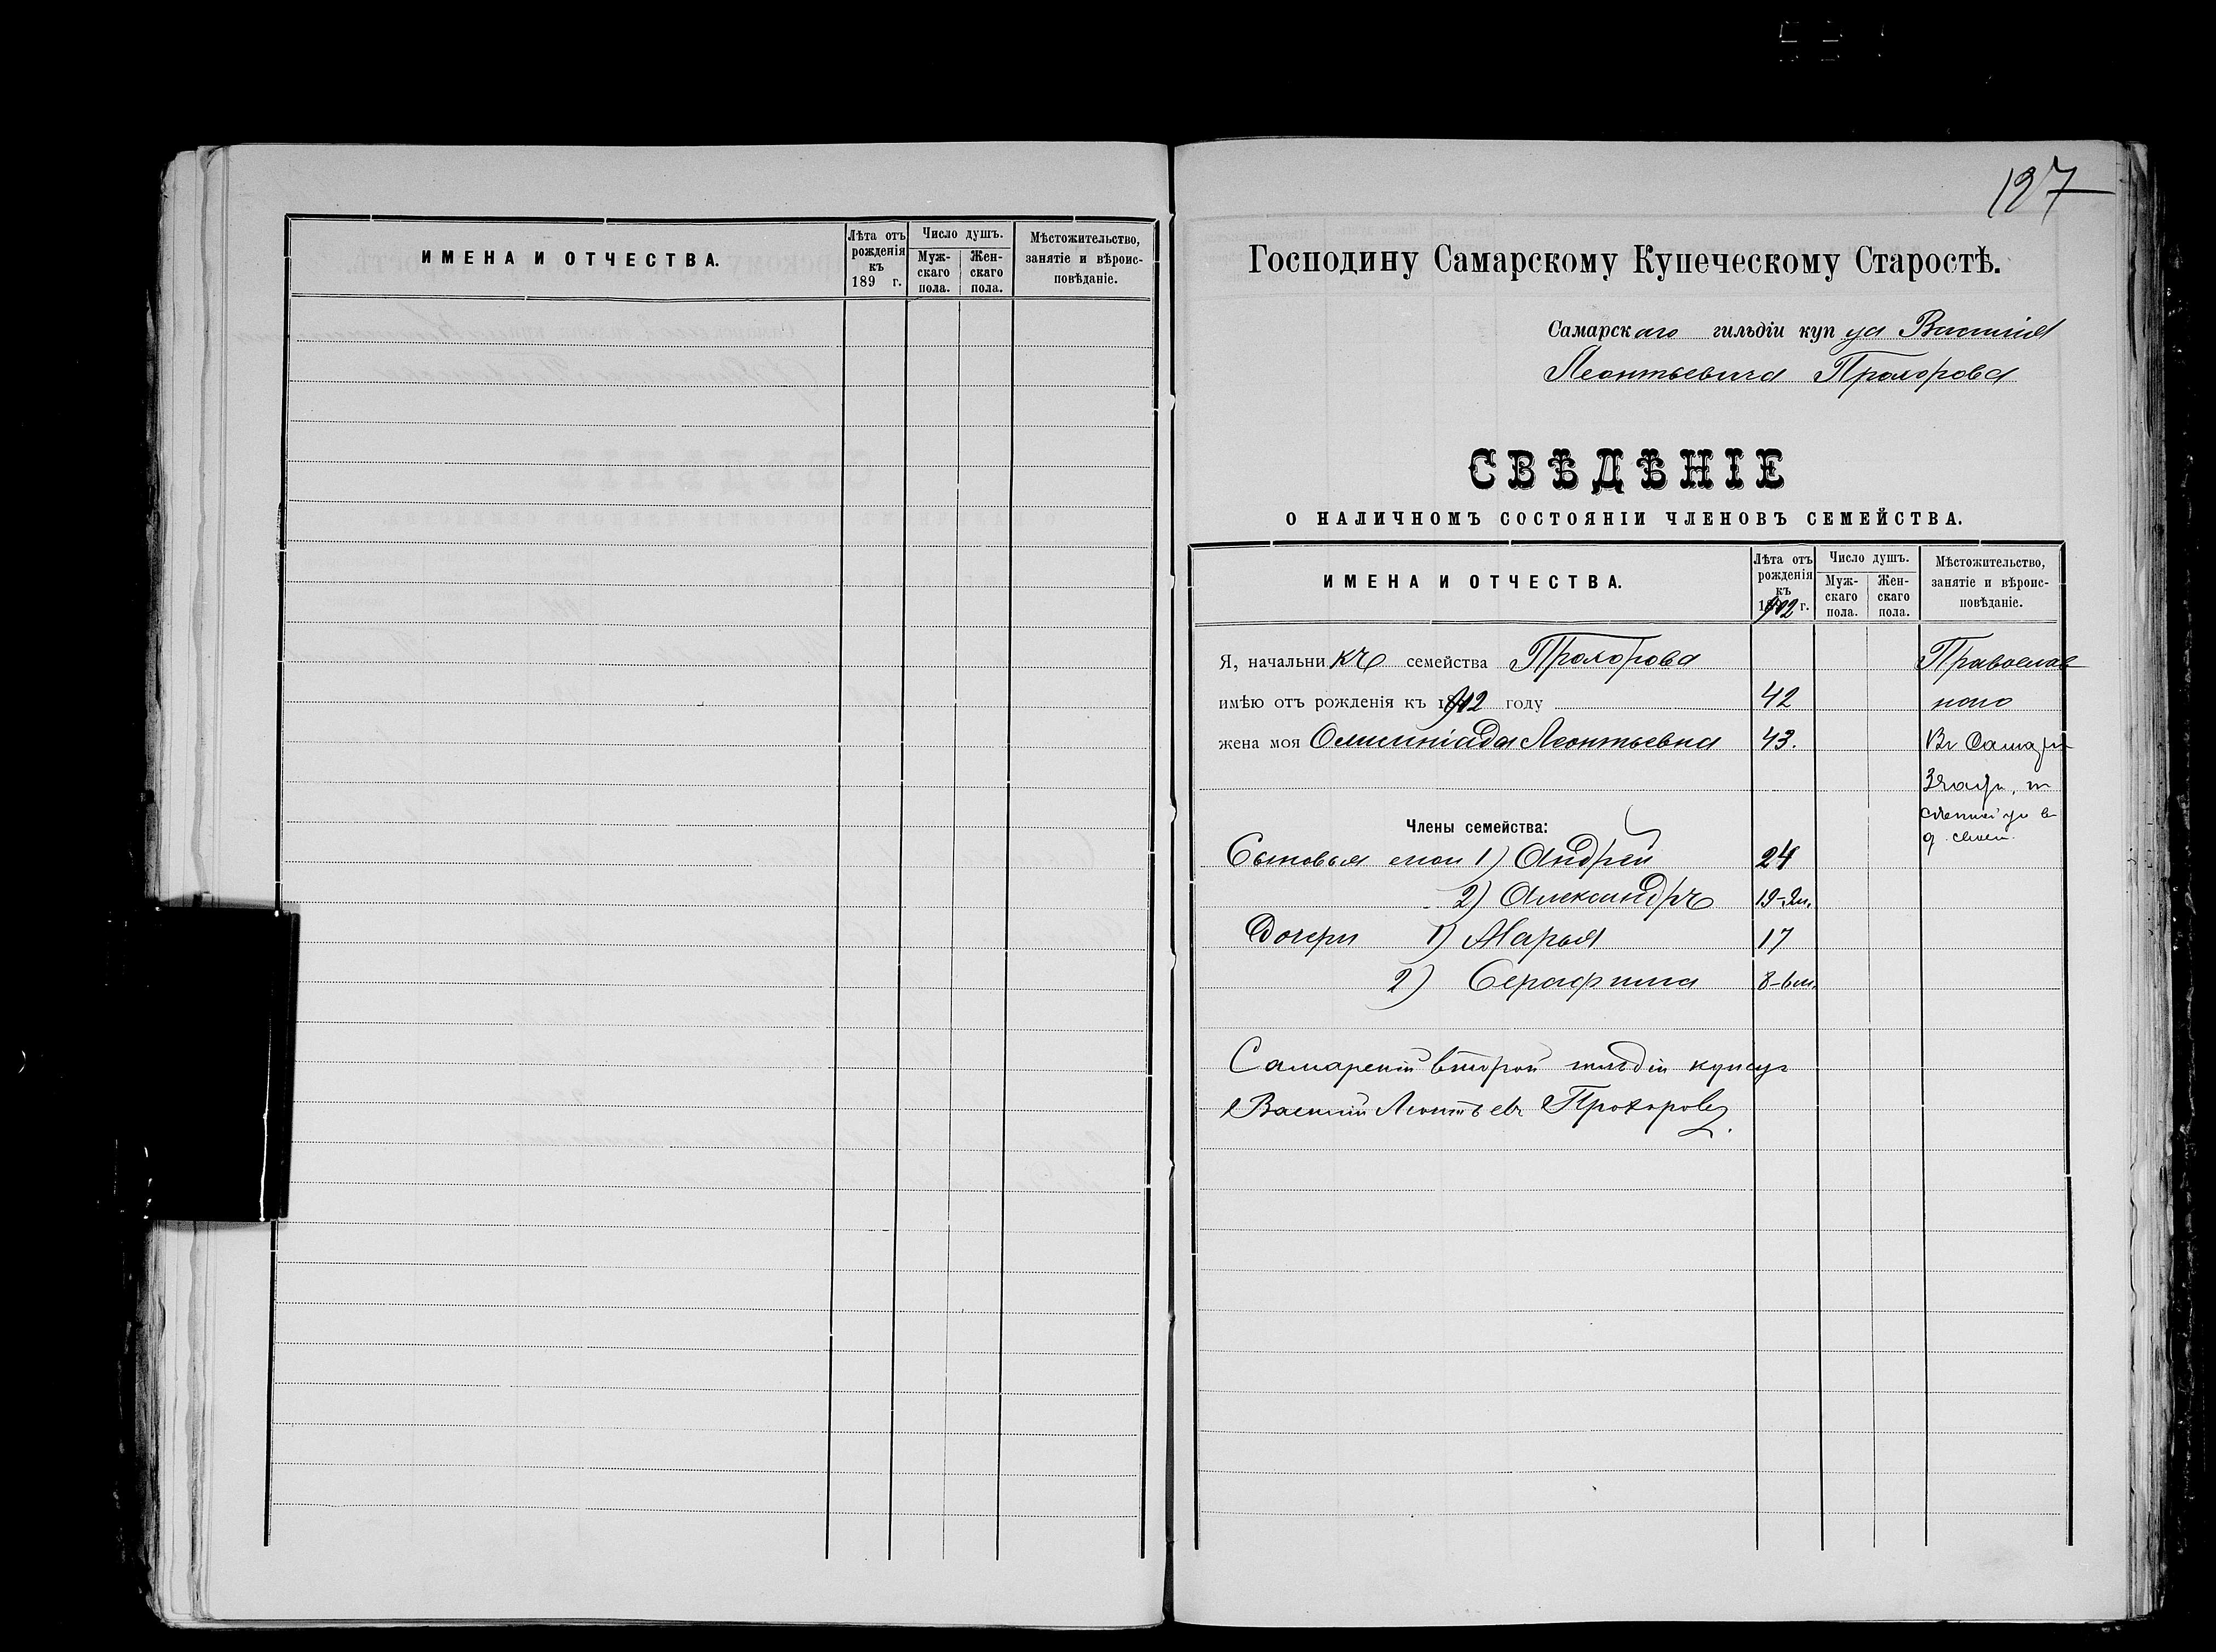 ИМЕНА И ОТЧЕСТВА.
Лѣта отъ рожденія къ 189 г.
Число душъ.
Муж-скаго пола.
Жен-скаго пола.
Мѣстожительство, занятіе и вѣроис-повѣданіе.
127
Господину Самарскому Купеческому Старостѣ.
Самарскаго гильдіи купца Василія
Леонтьевича Прохорова
СВѢДѢНІЕ
О НАЛИЧНОМЪ СОСТОЯНІИ ЧЛЕНОВЪ СЕМЕЙСТВА.
ИМЕНА И ОТЧЕСТВА.
Лѣта отъ рожденія къ 1902 г.
Число душъ.
Муж-скаго пола.
Жен-скаго пола.
Мѣстожительство, занятіе и вѣроис-повѣданіе.
Я, начальникъ семейства Прохорова Православ
имѣю отъ рожденія къ 1902 году 42 наго
жена моя Олимпіада Леонтьевна 43. Въ Самарѣ
3 части,
д. своем.
Члены семейства:
Сыновья мои 1) Андрей 24
2) Александръ 19-2м.
Дочери 1) Марья 17
2) Серафима 8-6м.
Самарскій второй гильдіи купецъ
Василий Леонтьевъ Прохоровъ.